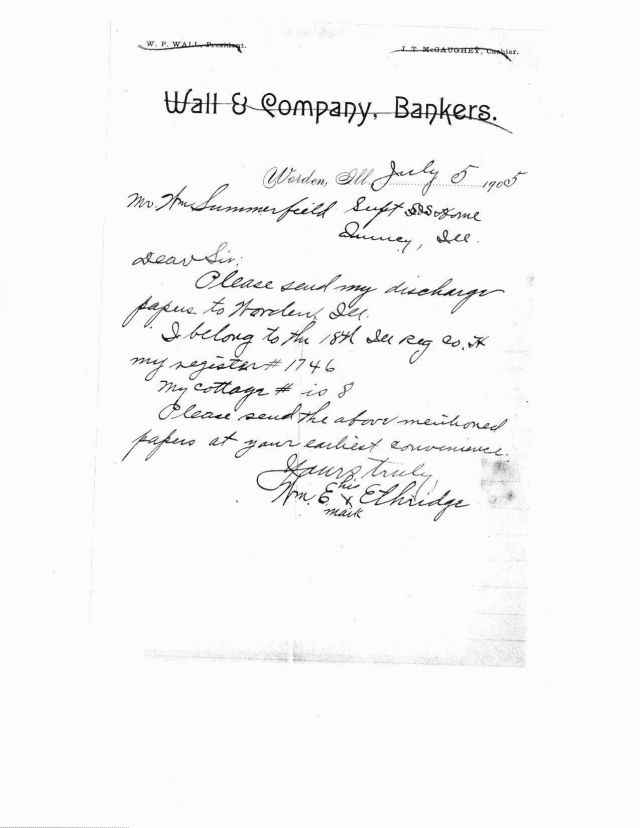 W. P. WALL, President. J. T. McGAUGHEY, Cashier.
Wall & Company, Bankers.
Worden, Ill. July 5 1905
Mr. Wm Summerfield Supt S&S Home
Quincy, Ill.
Dear Sir:
Please send my discharge
papers to Worden, Ill.
I belong to the 18th Ill Reg Co. H
my register # 1746
My cottage # is 8
Please send the above mentioned
papers at your earliest convenience.
Yours truly,
his
Wm. E x Ethridge
mark